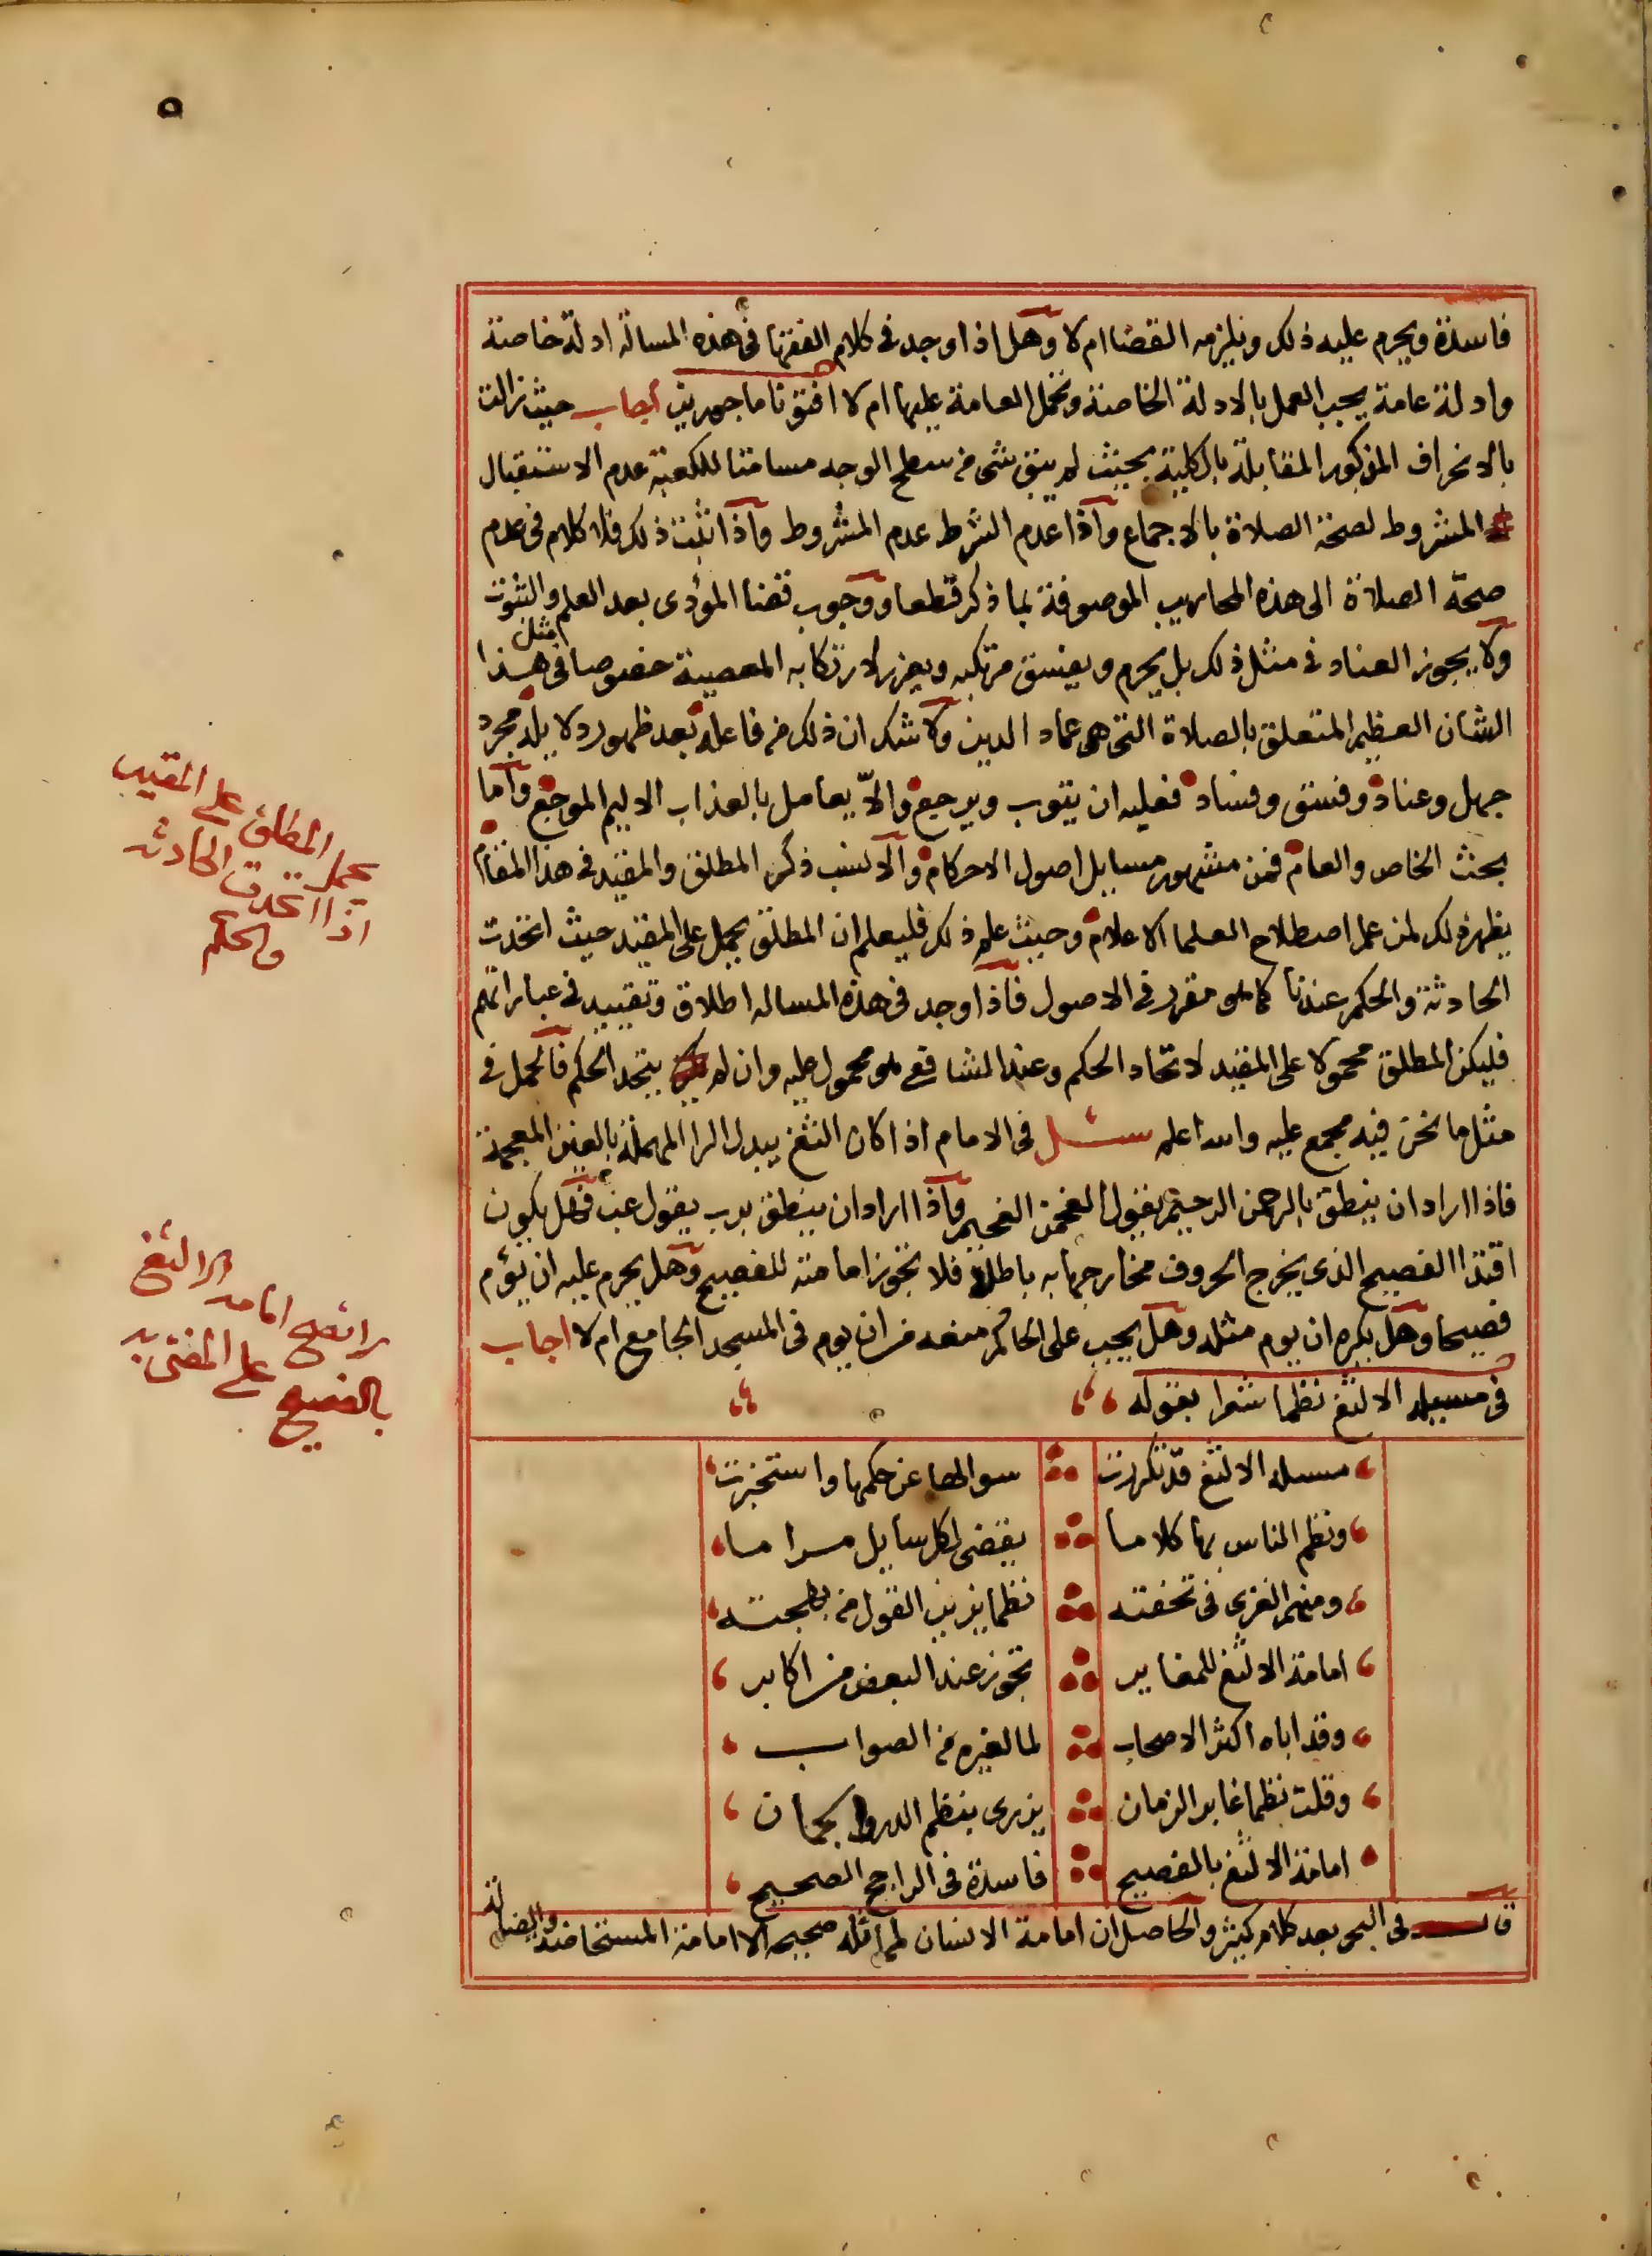 ٥
فاسدة ويحرم عليه ذلك ويلزمه القضا ام لا وهل اذا وجد في كلام الفقها في هذه المسالة ادلة خاصة
وادلة عامة يجب العمل بالادلة الخاصة وتحمل العامة عليها ام لا افتونا ماجورين اجاب حيث زالت
بالانحراف المذكور المقابلة بالكلية بحيث لم يبق شى من سطح الوجه مسامتا للكعبة عدم الاستقبال
المشروط لصحة الصلاة بالاجماع واذا عدم الشرط عدم المشروط واذا ثبت ذلك فلا كلام في عدم
صحة الصلاة الى هذه المحاريب الموصوفة بما ذكر قطعا ووجوب قضا المؤدى بعد العلم والثبوت
ولا يجوز العناد في مثل ذلك بل يحرم ويفسق مرتكبه ويعزر لارتكابه المعصية خصوصا في مثل هذا
الشان العظيم المتعلق بالصلاة التي هي عماد الدين ولا شك ان ذلك من فاعله بعد ظهور دلايله مجرد
جهل وعناد وفسق وفساد فعليه ان يتوب ويرجع والا يعامل بالعذاب الاليم الموجع واما
بحث الخاص والعام فمن مشهور مسايل اصول الاحكام والانسب ذكر المطلق والمقيد في هذا المقام
يظهر ذلك لمن علم اصطلاح العلما الاعلام وحيث علم ذلك فليعلم ان المطلق يحمل على المقيد حيث اتحدت
الحادثة والحكم عندنا كما هو مقرر في الاصول فاذا وجد في هذه المساله اطلاق وتقييد في عباراتهم
فليكن المطلق محمولا على المقيد لاتحاد الحكم وعند الشافعي هو محمول عليه وان لم يتحد الحكم فالحمل في
مثل ما نحن فيه مجمع عليه والله اعلم سئل في الامام اذا كان الثغ يبدل الرا المهملة بالغين المعجمة
فاذا اراد ان ينطق بالرحمن الرحيم يقول الغحمن الغحيم واذا اراد ان ينطق برب يقول غب فهل يكون
اقتدا الفصيح الذي يخرج الحروف مخارجها به باطلا فلا تجوز امامته للفصيح وهل يحرم عليه ان يؤم
فصيحا وهل يكره ان يوم مثله وهل يجب على الحاكم منعه من ان يوم في المسجد الجامع ام لا اجاب
في مسيلة الالثغ نظما نثرا بقوله
مسله الالثغ قد تكررت سوالها عن حكمها واستخبرت
ونظم الناس بها كلاما يقضى لكل سايل مراما
ومنهم الغزى في تحفته نظما يزين القول من بهجته
امامة الالثغ للمغاير تجوز عند البعض من اكابر
وقد اباه اكثر الاصحاب لما لغيره من الصواب
وقلت نظما غابر الزمان يزرى بنظم الدر والجمان
امامة الالثغ بالفصيح فاسدة في الراجح الصحيح
قال في البحر بعد كلام كثير والحاصل ان امامة الانسان لمماثله صحيحه الا امامة المستحاضة والضالة
يحمل المطلق على المقيد
اذا اتحدت الحادثه
والحكم
الراجح امامه الالثغ
بالفصيح على المفتى به